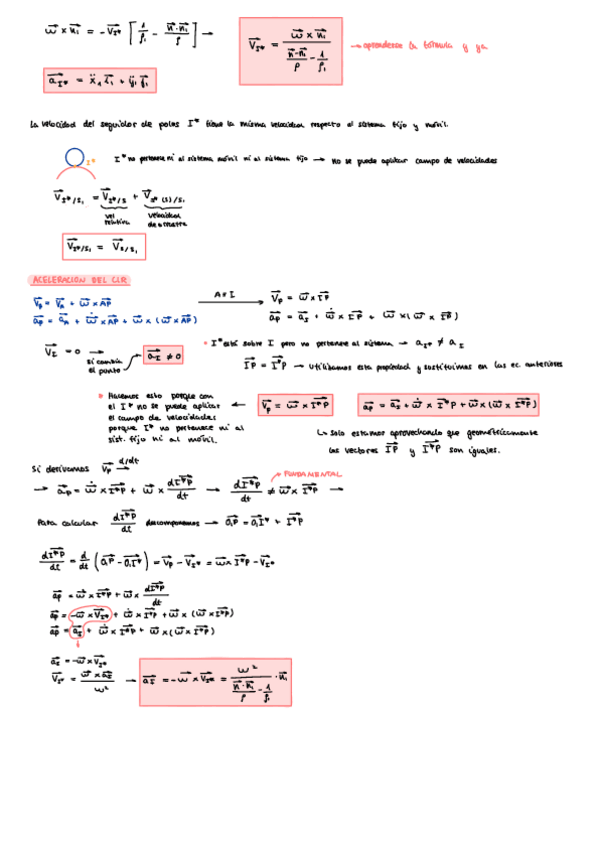 ω⃗ × n⃗₁ = -V⃗_I* [ 1/ρ₁ - n⃗·n⃗₁/ρ ] → V⃗_I* = (ω⃗ × n⃗₁) / (n⃗·n⃗₁/ρ - 1/ρ₁) → aprenderse la fórmula y ya
a⃗_I* = ẍ₁ i⃗₁ + ÿ₁ j⃗₁
La velocidad del seguidor de polos I* tiene la misma velocidad respecto al sistema fijo y móvil.
I* no pertenece ni al sistema móvil ni al sistema fijo → No se puede aplicar campo de velocidades
I*
V⃗_I*/S₁ = V⃗_I*/S + V⃗_I*(S)/S₁
vel relativa
velocidad de arrastre
V⃗_I*/S₁ = V⃗_I*/S
ACELERACIÓN DEL CIR
V⃗p = V⃗_A + ω⃗ × AP⃗
a⃗p = a⃗_A + ω⃗̇ × AP⃗ + ω⃗ × (ω⃗ × AP⃗)
A ≡ I
V⃗p = ω⃗ × IP⃗
a⃗p = a⃗_I + ω⃗̇ × IP⃗ + ω⃗ × (ω⃗ × IP⃗)
V⃗_I = 0 → si cambia el punto a⃗_I ≠ 0
• I* está sobre I pero no pertenece al sistema → a_I* ≠ a_I
IP⃗ = I*P⃗ → Utilizamos esta propiedad y sustituimos en las ec. anteriores
Hacemos esto porque con
el I* no se puede aplicar
el campo de velocidades
porque I* no pertenece ni al
sist. fijo ni al móvil.
← V⃗p = ω⃗ × I*P⃗
a⃗p = a⃗_I + ω⃗̇ × I*P⃗ + ω⃗ × (ω⃗ × I*P⃗)
↳ Solo estamos aprovechando que geométricamente
los vectores IP⃗ y I*P⃗ son iguales.
Si derivamos V⃗p d/dt
→ a⃗p = ω⃗̇ × I*P⃗ + ω⃗ × dI*P⃗/dt → dI*P⃗/dt ≠ ω⃗ × I*P⃗ →
FUNDAMENTAL
Para calcular dI*P⃗/dt descomponemos → O₁P⃗ = O₁I*⃗ + I*P⃗
dI*P⃗/dt = d/dt (O₁P⃗ - O₁I*⃗) = V⃗p - V⃗_I* = ω⃗ × I*P⃗ - V⃗_I*
a⃗p = ω⃗̇ × I*P⃗ + ω⃗ × dI*P⃗/dt
a⃗p = -ω⃗ × V⃗_I* + ω⃗̇ × I*P⃗ + ω⃗ × (ω⃗ × I*P⃗)
a⃗p = a⃗_I + ω⃗̇ × I*P⃗ + ω⃗ × (ω⃗ × I*P⃗)
a⃗_I = -ω⃗ × V⃗_I*
V⃗_I* = (ω⃗ × a⃗_I)/ω² → a⃗_I = -ω⃗ × V⃗_I* = ω² / (n⃗·n⃗₁/ρ - 1/ρ₁) · n⃗₁